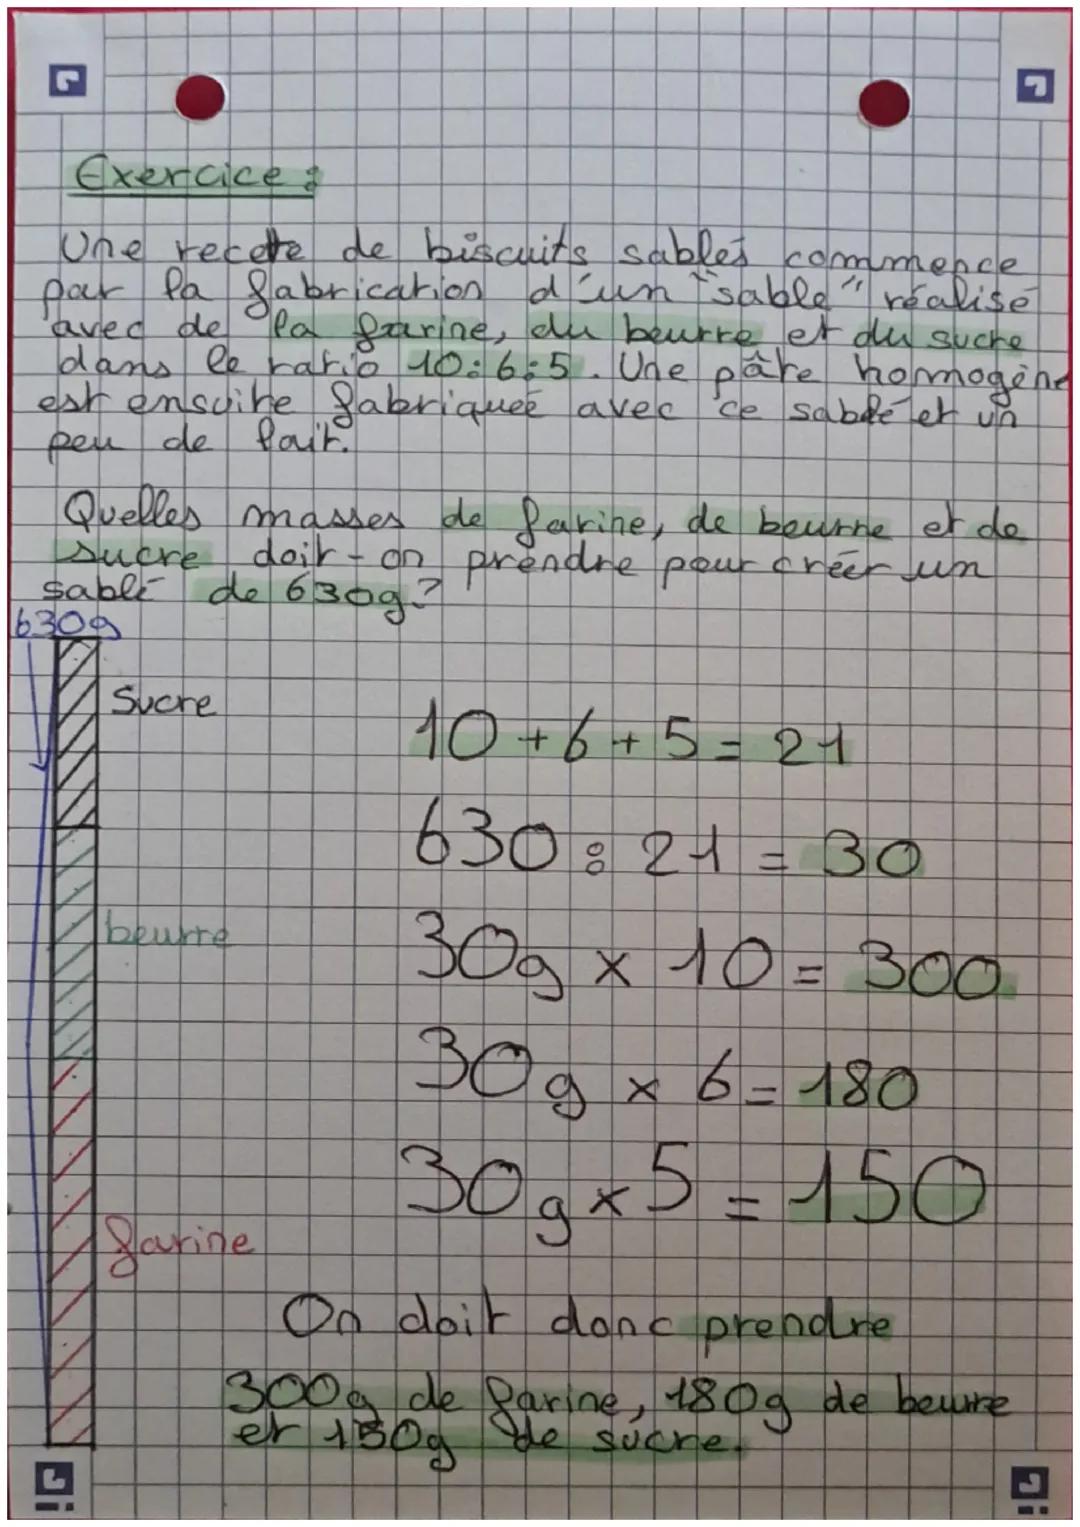 Exercice :
Une recette de biscuits sablés commence
par la fabrication d'un "sablé" réalisé
avec de la farine, du beurre et du sucre
dans le ratio 10:6:5. Une pâte homogène
est ensuite fabriquée avec ce sablé et un
peu de lait.
Quelles masses de farine, de beurre et de
sucre doit-on prendre pour créer un
sablé de 630g?
630g
Sucre
beurre
farine
10 + 6 + 5 = 21
630 : 21 = 30
30g x 10 = 300
30g x 6 = 180
30g x 5 = 150
On doit donc prendre
300g de farine, 180g de beurre
et 150g de sucre.